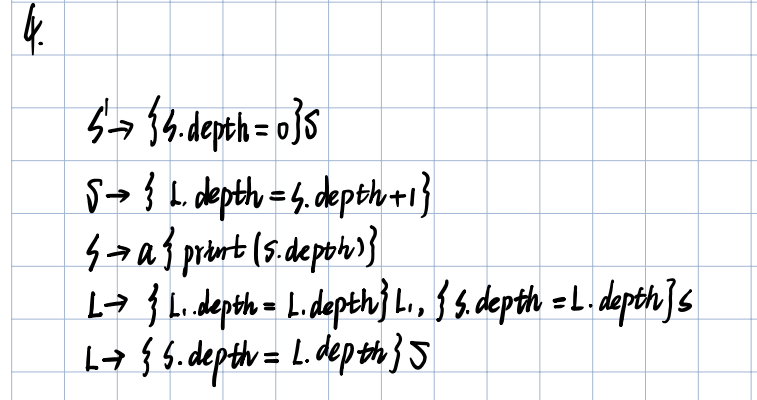 4.
S' → {S.depth = 0}S
S → { L.depth = S.depth+1}
S → a { print (S.depth)}
L → { L₁.depth = L.depth} L₁, { S.depth = L.depth} S
L → { S.depth = L.depth } S